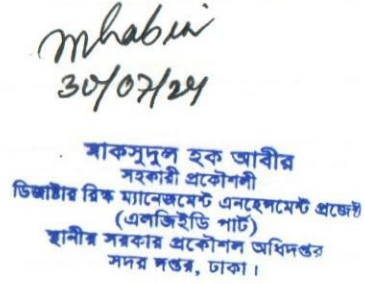 mhabir
30/07/24
মাকসুদুল হক আবীর
সহকারী প্রকৌশলী
ডিজাষ্টার রিস্ক ম্যানেজমেন্ট এনহেন্সমেন্ট প্রজেক্ট
(এলজিইডি পার্ট)
স্থানীয় সরকার প্রকৌশল অধিদপ্তর
সদর দপ্তর, ঢাকা।